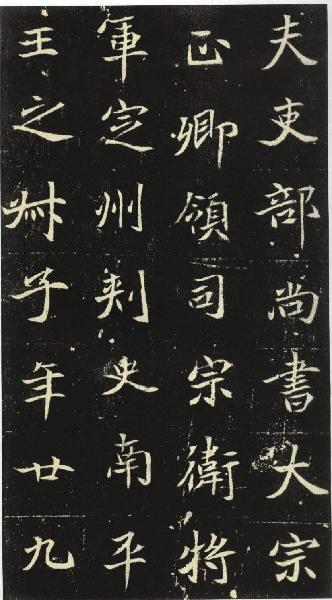 夫吏部尚書大宗
正卿領司宗衛將
軍定州刾史南平
主之叔子年廿九